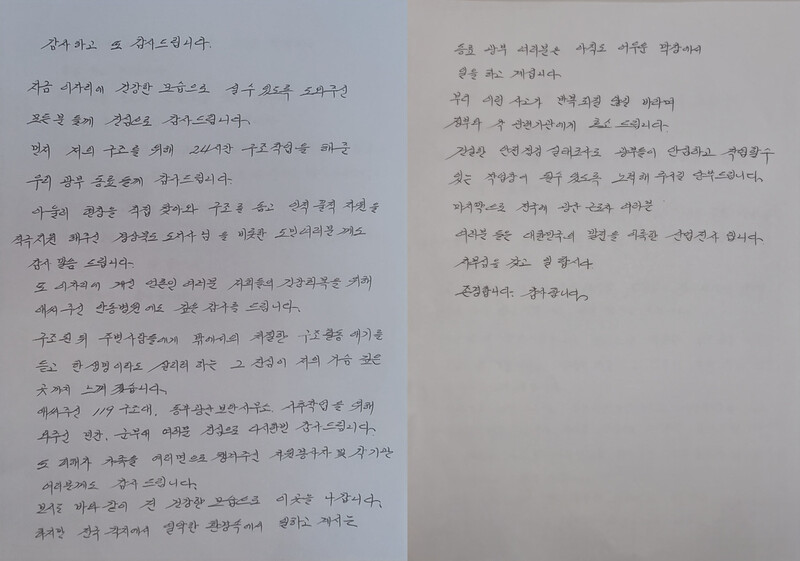 감사하고 또 감사드립니다.
지금 이자리에 건강한 모습으로 설수 있도록 도와주신
모든분들께 진심으로 감사드립니다.
먼저 저의 구조를 위해 24시간 구조작업을 해준
우리 광부 동료들께 감사드립니다.
아울러 현장을 직접 찾아와 구조를 돕고 인적 물적 자원을
적극지원 해주신 경상북도 도지사님을 비롯한 도민여러분께도
감사 말씀 드립니다.
또 이자리에 계신 언론인 여러분 저희들의 건강회복을 위해
애써주신 안동병원에도 깊은 감사를 드립니다.
구조된 뒤 주변사람들에게 밖에서의 처절한 구조활동 얘기를
듣고 한 생명이라도 살리려 하는 그 진심이 저의 가슴 깊은
곳까지 느껴졌습니다.
애써주신 119 구조대, 동부광산보안사무소, 시추작업을 위해
와주신 민간, 군부대 여러분 진심으로 다시한번 감사드립니다.
또 피해자 가족을 여러면으로 챙겨주신 자원봉사자 및 각기관
여러분께도 감사드립니다.
보시는 바와 같이 전 건강한 모습으로 이곳을 나갑니다.
하지만 전국 각지에서 열악한 환경속에서 일하고 계시는
동료 광부 여러분은 아직도 어두운 막장에서
일을 하고 계십니다.
부디 이런 사고가 반복되질 않길 바라며
정부와 각 관련기관에게 호소 드립니다.
진실한 안전점검 실태조사로 광부들이 안심하고 작업할수
있는 작업장이 될수 있도록 노력해 주시길 당부드립니다.
마지막으로 전국에 광산 근로자 여러분
여러분들은 대한민국의 발전을 이룩한 산업전사 입니다.
자부심을 갖고 일 합시다.
존경합니다. 감사합니다.